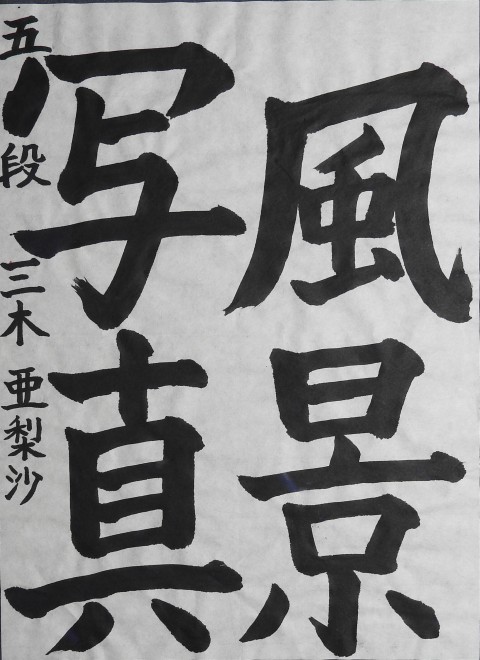 風景
写真
五段 三木 亜梨沙